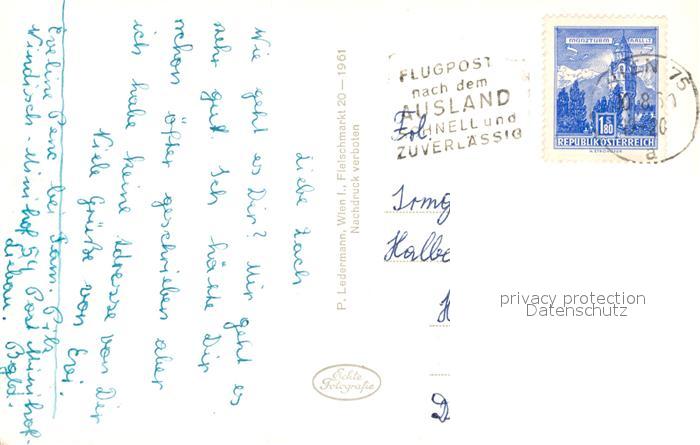 Liebe
Wie geht es Dir? Mir geht es
sehr gut. Ich hätte Dir
schon öfter geschrieben aber
ich habe keine Adresse von Dir
Viele Grüße von Evi.
Eveline Penc bei Fam.
Windisch-Minihof 54 Post Minihof-
P. Ledermann, Wien I., Fleischmarkt 20 — 1961
Nachdruck verboten
Echte
Fotografie
FLUGPOST
nach dem
AUSLAND
SCHNELL und
ZUVERLÄSSIG
MÜNZTURM HALL I. T.
1.80
REPUBLIK ÖSTERREICH
WIEN 75
a
Frl.
Irmg
Halbe
H
D
privacy protection
Datenschutz